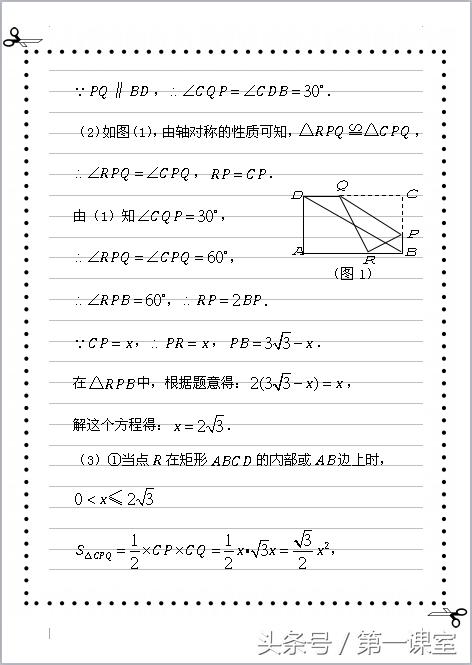 ∵ PQ ∥ BD，∴ ∠CQP=∠CDB=30°．
（2）如图(1)，由轴对称的性质可知，△RPQ≌△CPQ，
∴ ∠RPQ=∠CPQ，RP=CP．
由（1）知∠CQP=30°，
∴ ∠RPQ=∠CPQ=60°，
D Q C
P
A R B
（图1）
∴ ∠RPB=60°，∴ RP=2BP．
∵ CP=x，∴ PR=x，PB=3√3-x．
在△RPB中，根据题意得：2(3√3-x)=x，
解这个方程得：x=2√3．
（3）①当点R在矩形ABCD的内部或AB边上时，
0<x≤2√3
S△CPQ=1/2×CP×CQ=1/2x·√3x=√3/2x²，
头条号 / 第一课室